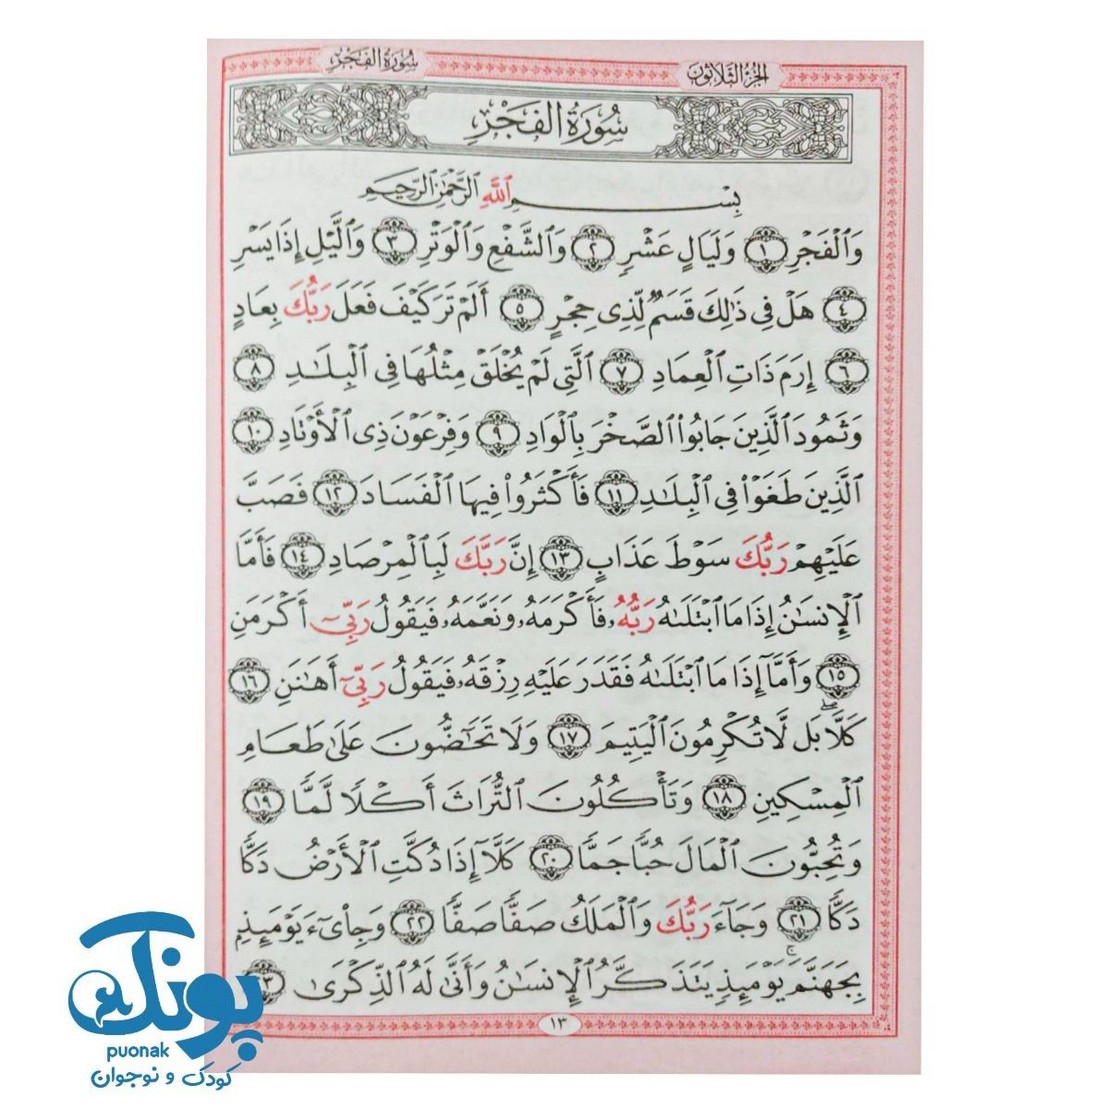 الجزء الثلاثون
سورة الفجر
سُورَةُ الفَجْرِ
بِسْمِ ٱللَّهِ ٱلرَّحْمَٰنِ ٱلرَّحِيمِ
وَٱلْفَجْرِ ١ وَلَيَالٍ عَشْرٍ ٢ وَٱلشَّفْعِ وَٱلْوَتْرِ ٣ وَٱلَّيْلِ إِذَا يَسْرِ
٤ هَلْ فِى ذَٰلِكَ قَسَمٌ لِّذِى حِجْرٍ ٥ أَلَمْ تَرَ كَيْفَ فَعَلَ رَبُّكَ بِعَادٍ
٦ إِرَمَ ذَاتِ ٱلْعِمَادِ ٧ ٱلَّتِى لَمْ يُخْلَقْ مِثْلُهَا فِى ٱلْبِلَٰدِ ٨
وَثَمُودَ ٱلَّذِينَ جَابُوا۟ ٱلصَّخْرَ بِٱلْوَادِ ٩ وَفِرْعَوْنَ ذِى ٱلْأَوْتَادِ ١٠
ٱلَّذِينَ طَغَوْا۟ فِى ٱلْبِلَٰدِ ١١ فَأَكْثَرُوا۟ فِيهَا ٱلْفَسَادَ ١٢ فَصَبَّ
عَلَيْهِمْ رَبُّكَ سَوْطَ عَذَابٍ ١٣ إِنَّ رَبَّكَ لَبِٱلْمِرْصَادِ ١٤ فَأَمَّا
ٱلْإِنسَٰنُ إِذَا مَا ٱبْتَلَىٰهُ رَبُّهُۥ فَأَكْرَمَهُۥ وَنَعَّمَهُۥ فَيَقُولُ رَبِّىٓ أَكْرَمَنِ
١٥ وَأَمَّآ إِذَا مَا ٱبْتَلَىٰهُ فَقَدَرَ عَلَيْهِ رِزْقَهُۥ فَيَقُولُ رَبِّىٓ أَهَٰنَنِ ١٦
كَلَّا ۖ بَل لَّا تُكْرِمُونَ ٱلْيَتِيمَ ١٧ وَلَا تَحَٰٓضُّونَ عَلَىٰ طَعَامِ
ٱلْمِسْكِينِ ١٨ وَتَأْكُلُونَ ٱلتُّرَاثَ أَكْلًا لَّمًّا ١٩
وَتُحِبُّونَ ٱلْمَالَ حُبًّا جَمًّا ٢٠ كَلَّآ إِذَا دُكَّتِ ٱلْأَرْضُ دَكًّا
دَكًّا ٢١ وَجَآءَ رَبُّكَ وَٱلْمَلَكُ صَفًّا صَفًّا ٢٢ وَجِا۟ىٓءَ يَوْمَئِذٍۭ
بِجَهَنَّمَ ۚ يَوْمَئِذٍ يَتَذَكَّرُ ٱلْإِنسَٰنُ وَأَنَّىٰ لَهُ ٱلذِّكْرَىٰ ٢٣
١٣
پونک
puonak
کودک و نوجوان